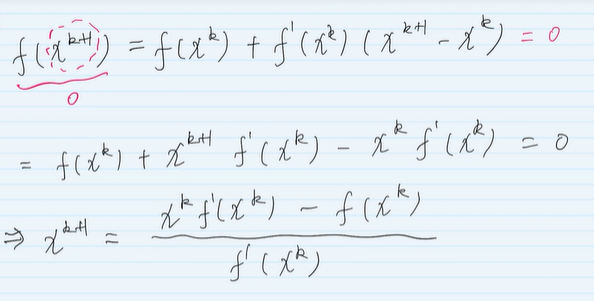 f(x^{k+1}) = f(x^k) + f'(x^k) (x^{k+1} - x^k) = 0
0
= f(x^k) + x^{k+1} f'(x^k) - x^k f'(x^k) = 0
⇒ x^{k+1} = \frac{x^k f'(x^k) - f(x^k)}{f'(x^k)}